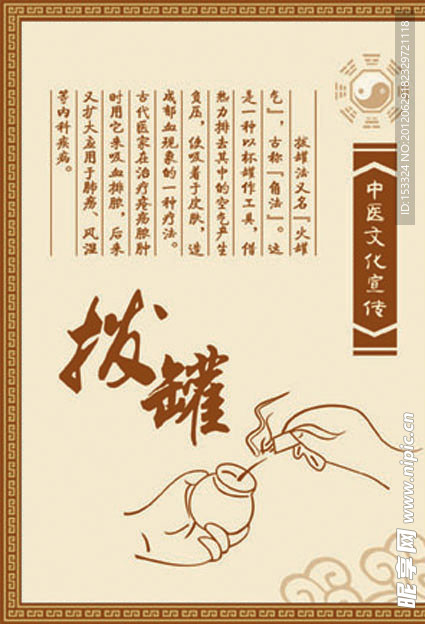 中医文化宣传
拔罐法又名『火罐
气』,古称『角法』。这
是一种以杯罐作工具,借
热力排去其中的空气产生
负压,使吸着于皮肤,造
成郁血现象的一种疗法。
古代医家在治疗疮疡脓肿
时用它来吸血排脓,后来
又扩大应用于肺痨、风湿
等内科疾病。
拔罐
ID:153324 NO:20120629182329721118
昵享网 www.nipic.cn